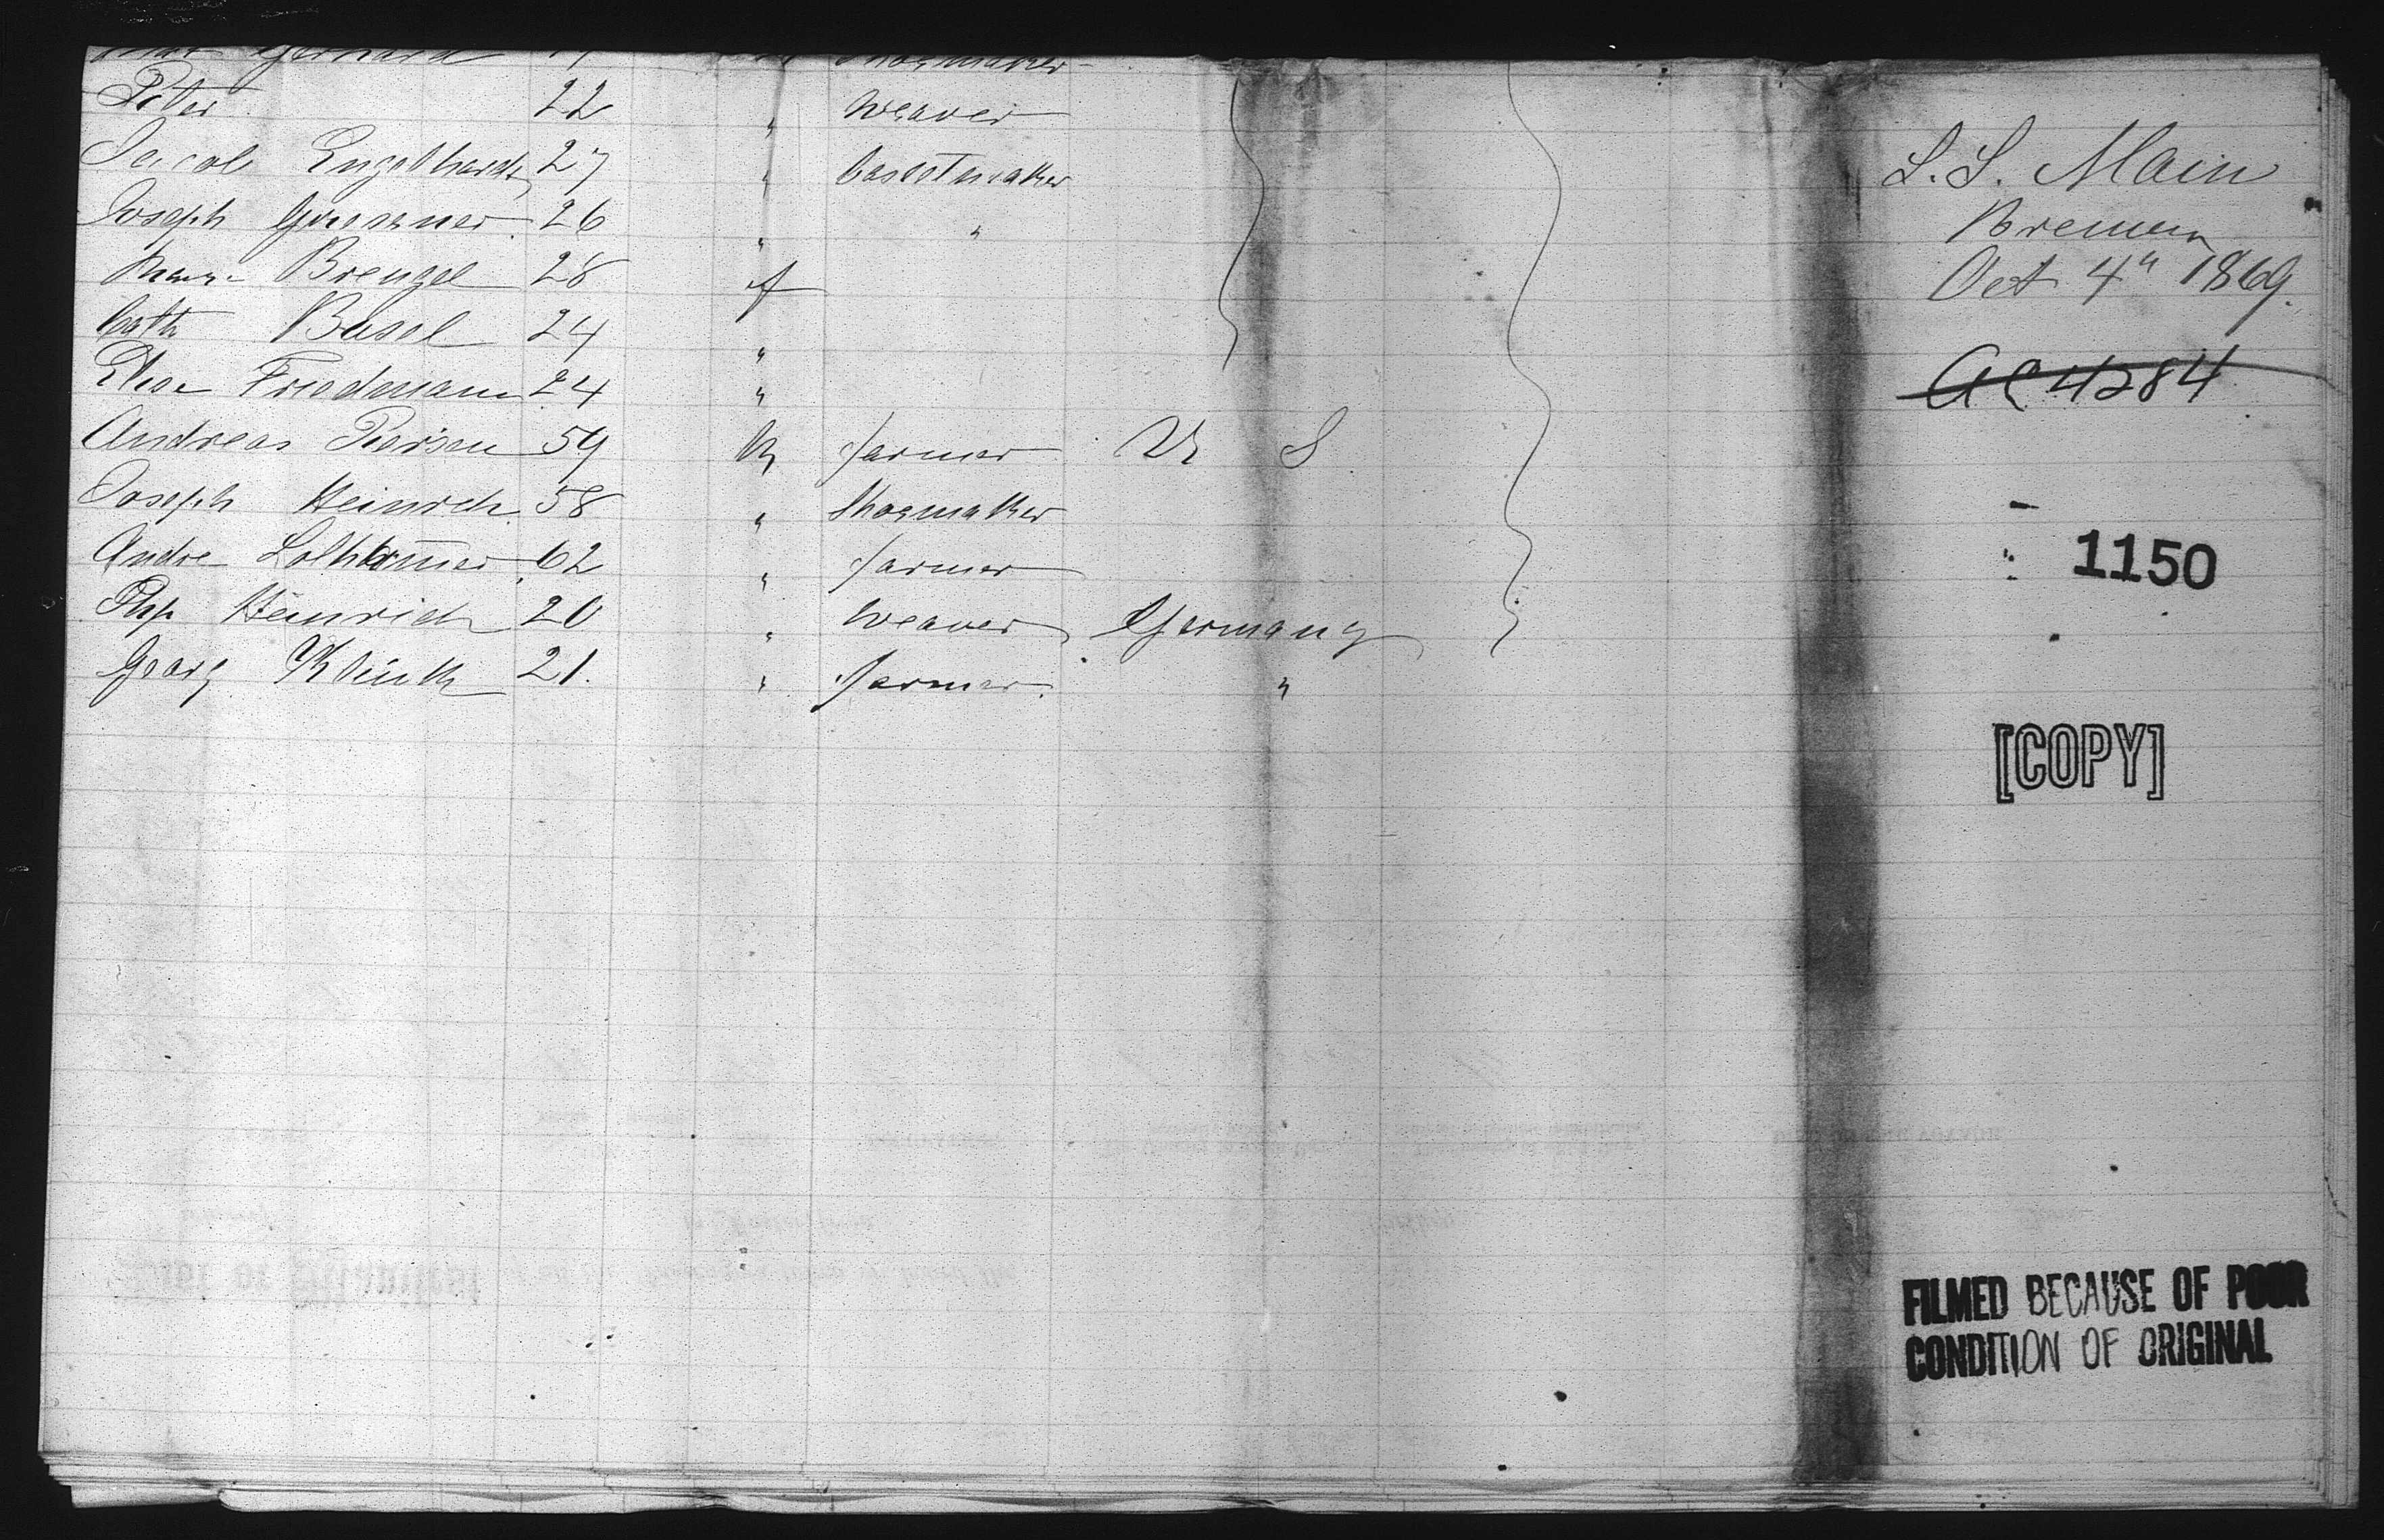 Gerhard Shoemaker
Peter 22 " Weaver
Jacob Engelhardt 27 " basketmaker
Joseph Griesaner 26 " "
Brengel 28 f
Cath Basel 24 "
Elise Friedmann 24 "
Andreas Piersen 59 m farmer U S
Joseph Heinrich 58 " Shoemaker
Andre 62 " farmer
Php Heinrich 20 " Weaver Germany
Georg Klink 21. " farmer. "
S.S. Main
Bremen
Oct 4" 1869.
1150
[COPY]
FILMED BECAUSE OF POOR
CONDITION OF ORIGINAL